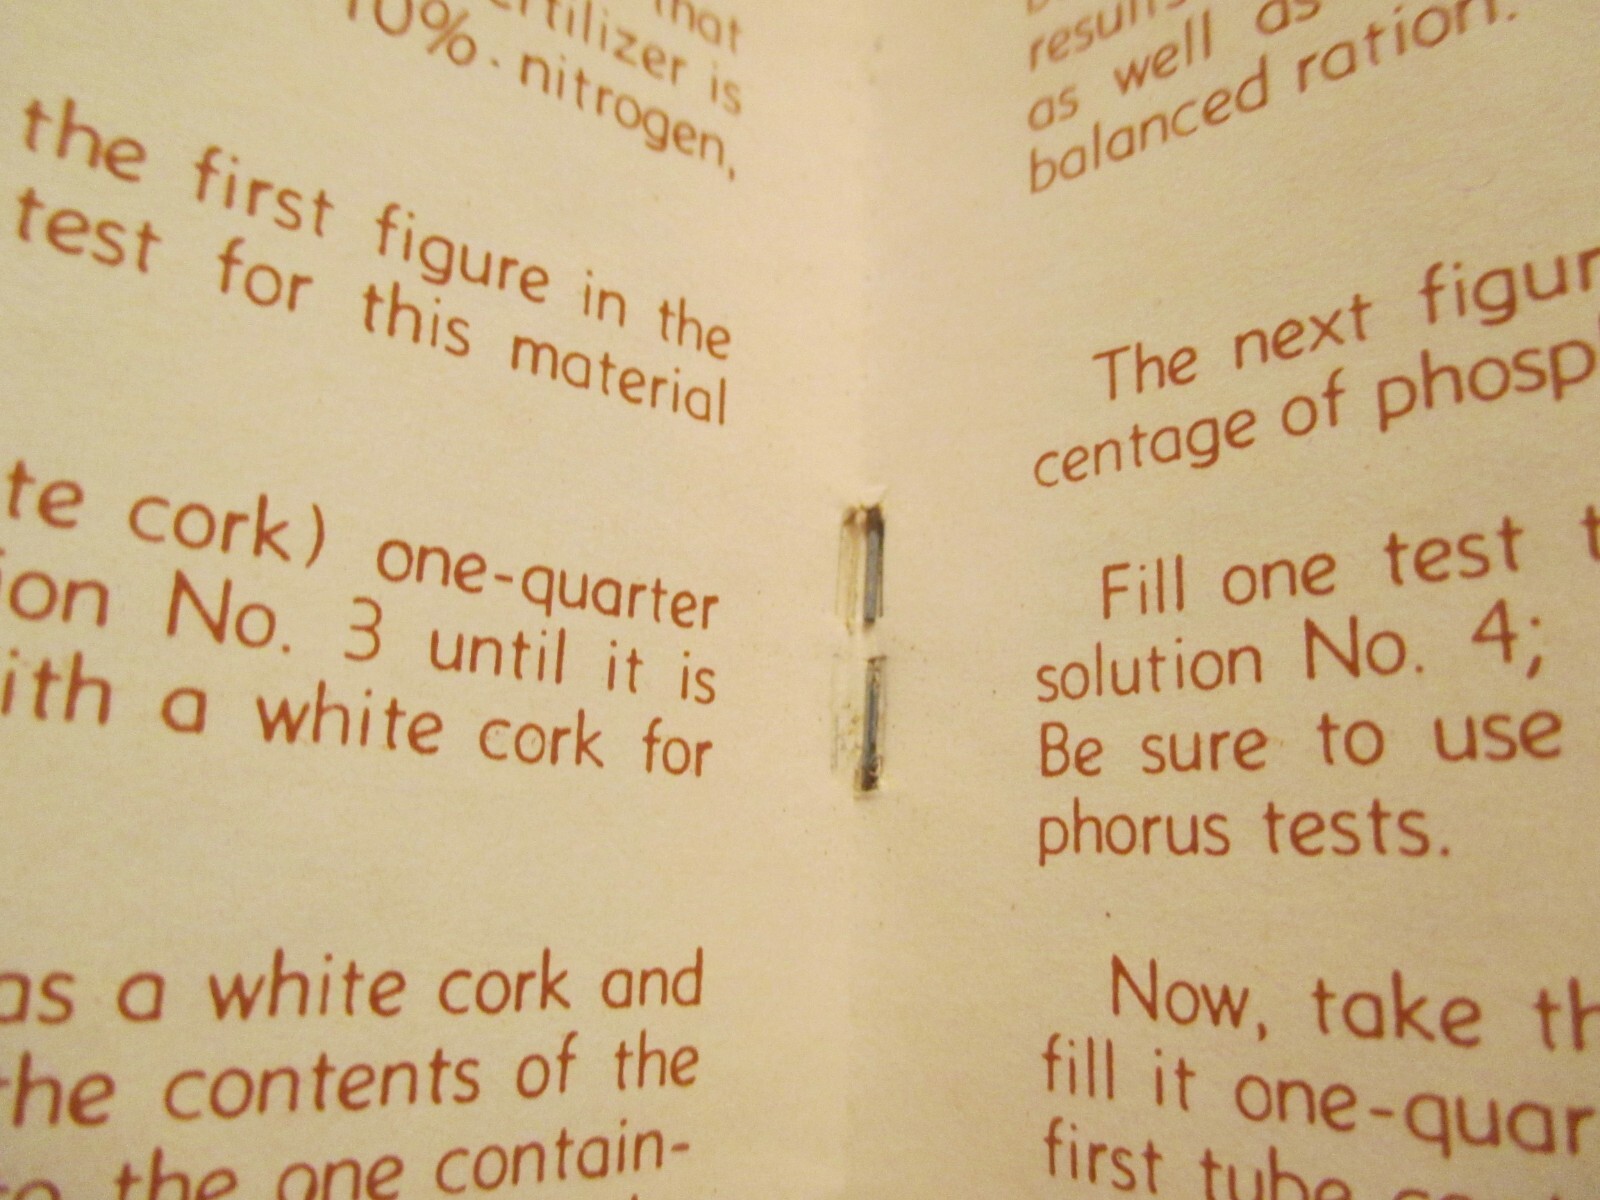 that
fertilizer is
10% nitrogen,
the first figure in the
test for this material
te cork) one-quarter
ion No. 3 until it is
ith a white cork for
as a white cork and
the contents of the
to the one contain-
results
as well as
balanced ration.
The next figur
centage of phosp
Fill one test t
solution No. 4;
Be sure to use
phorus tests.
Now, take th
fill it one-quar
first tube